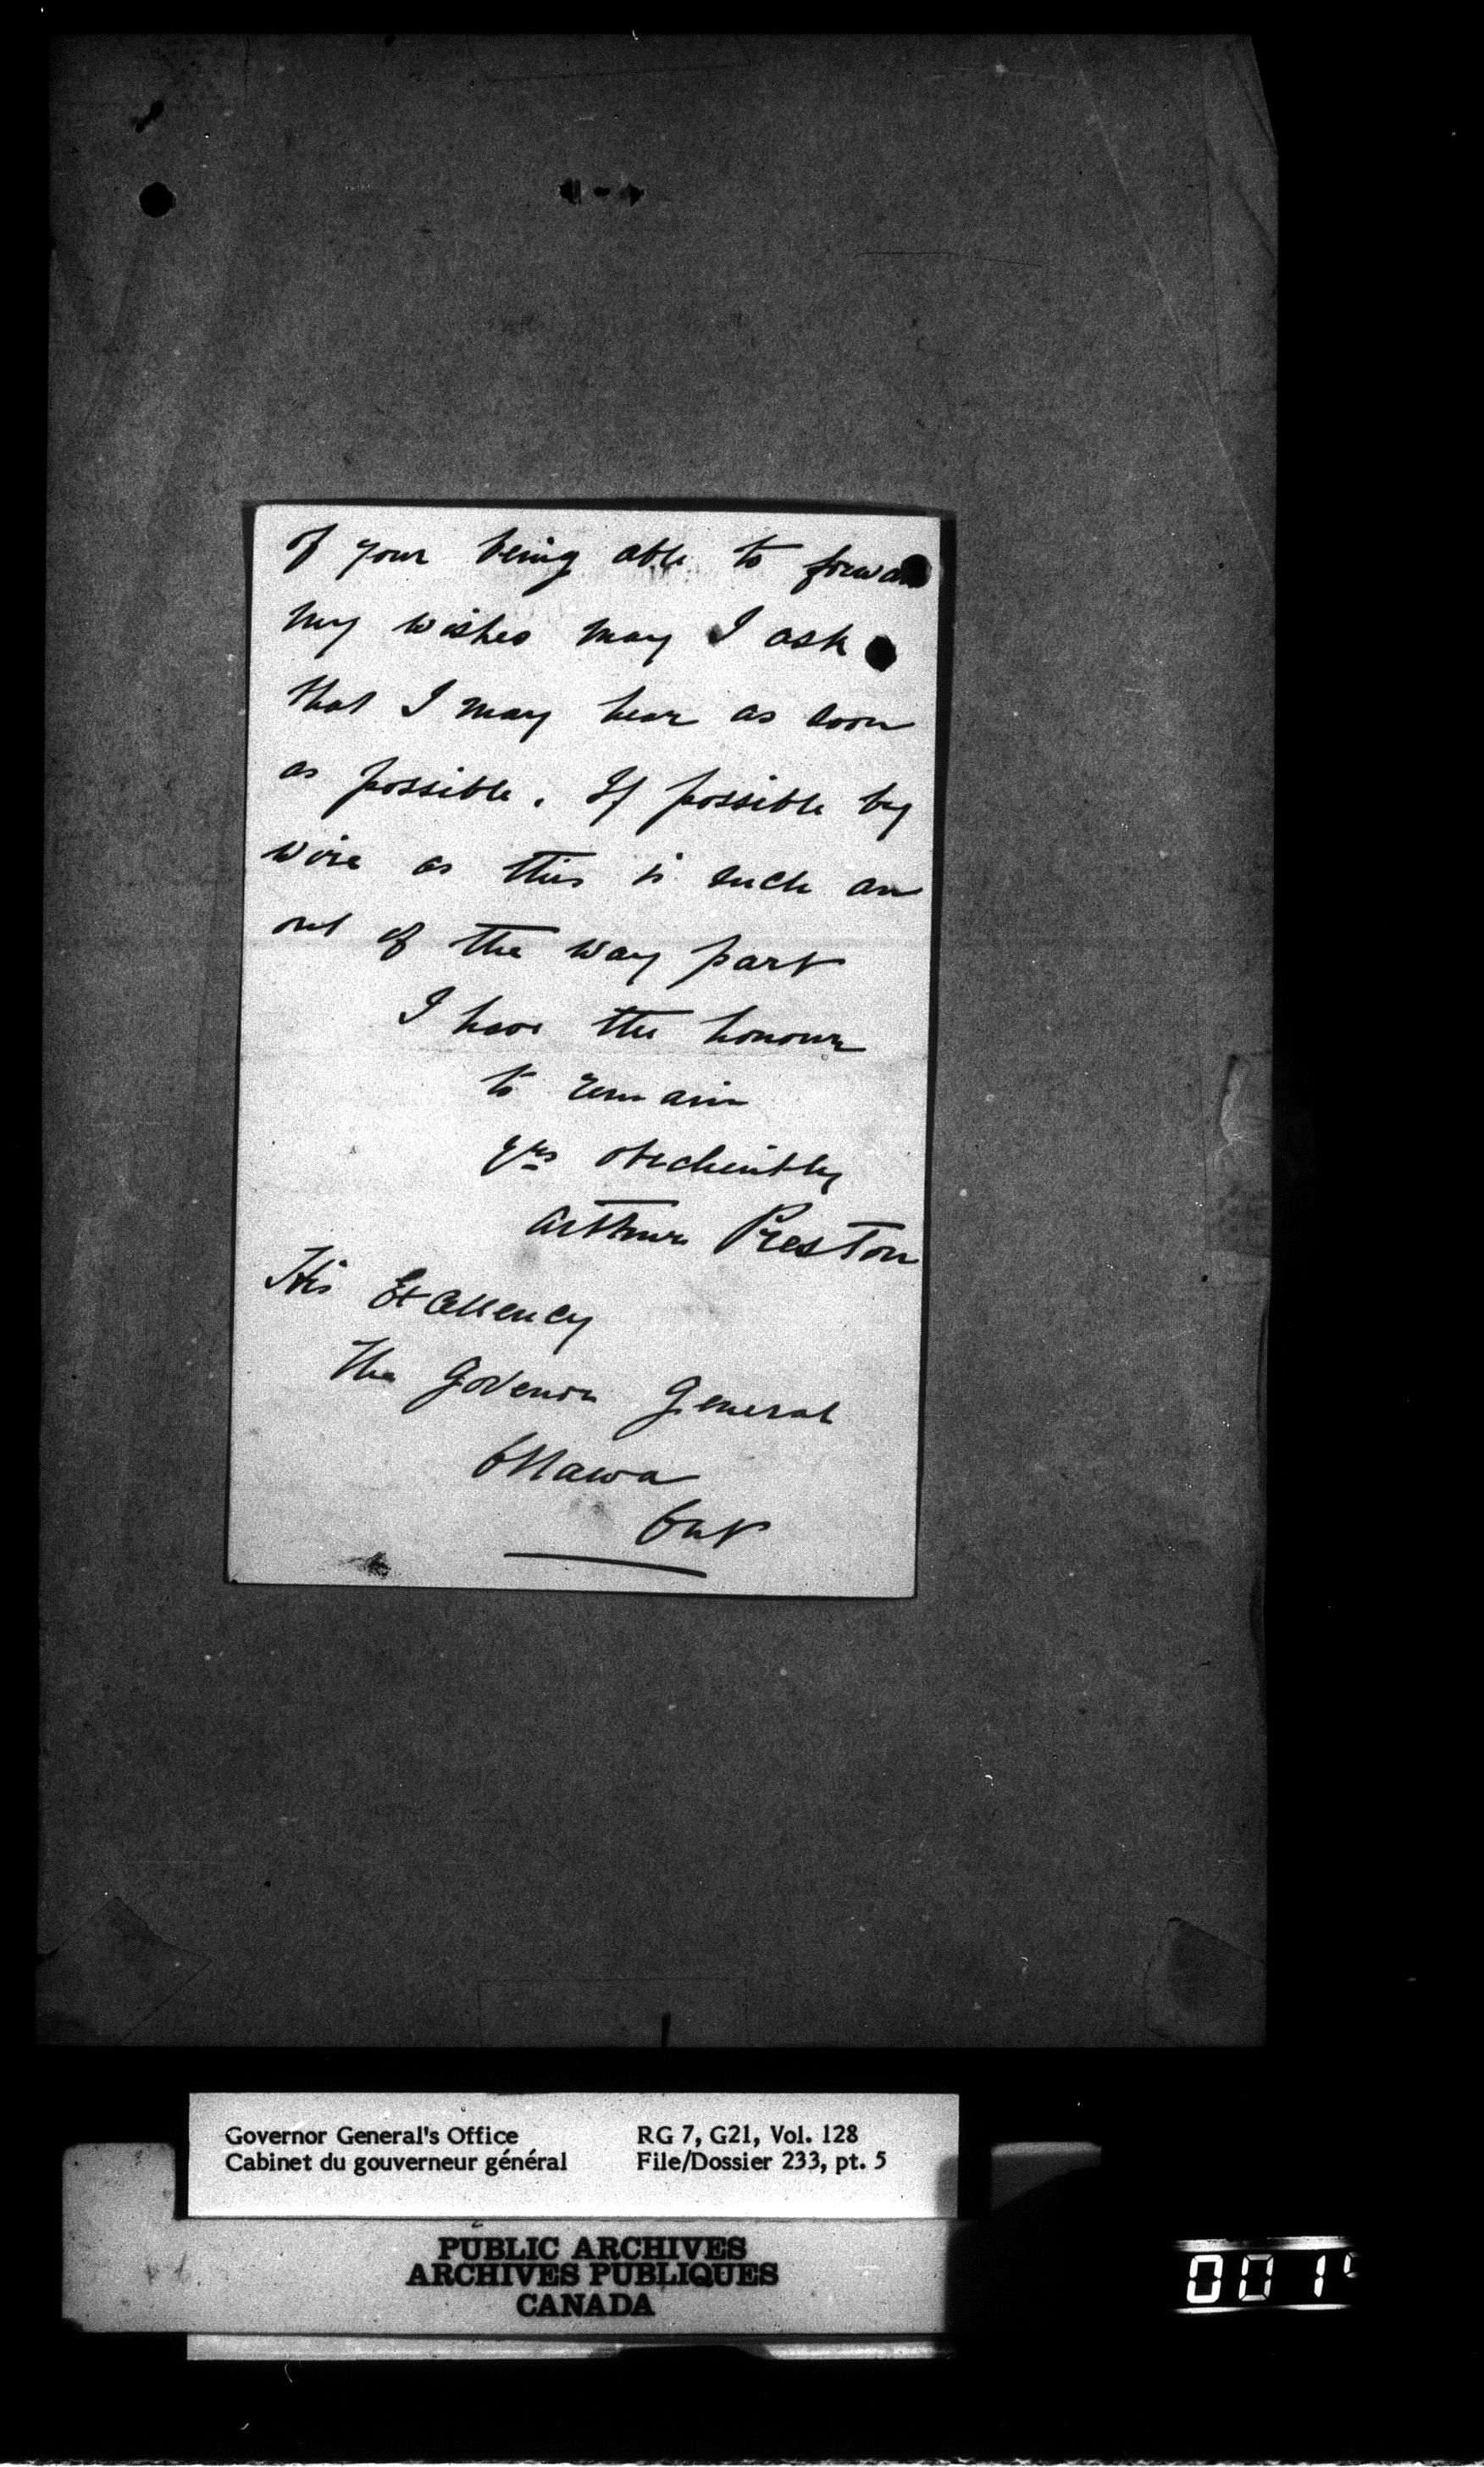 of your being able to forward
my wishes may I ask
that I may hear as soon
as possible. If possible by
wire as this is such an
out of the way part
I have the honour
to remain
Yrs obediently
Arthur Preston
His Excellency
The Govenor General
Ottawa
Ont
Governor General's Office RG 7, G21, Vol. 128
Cabinet du gouverneur général File/Dossier 233, pt. 5
PUBLIC ARCHIVES
ARCHIVES PUBLIQUES
CANADA
001